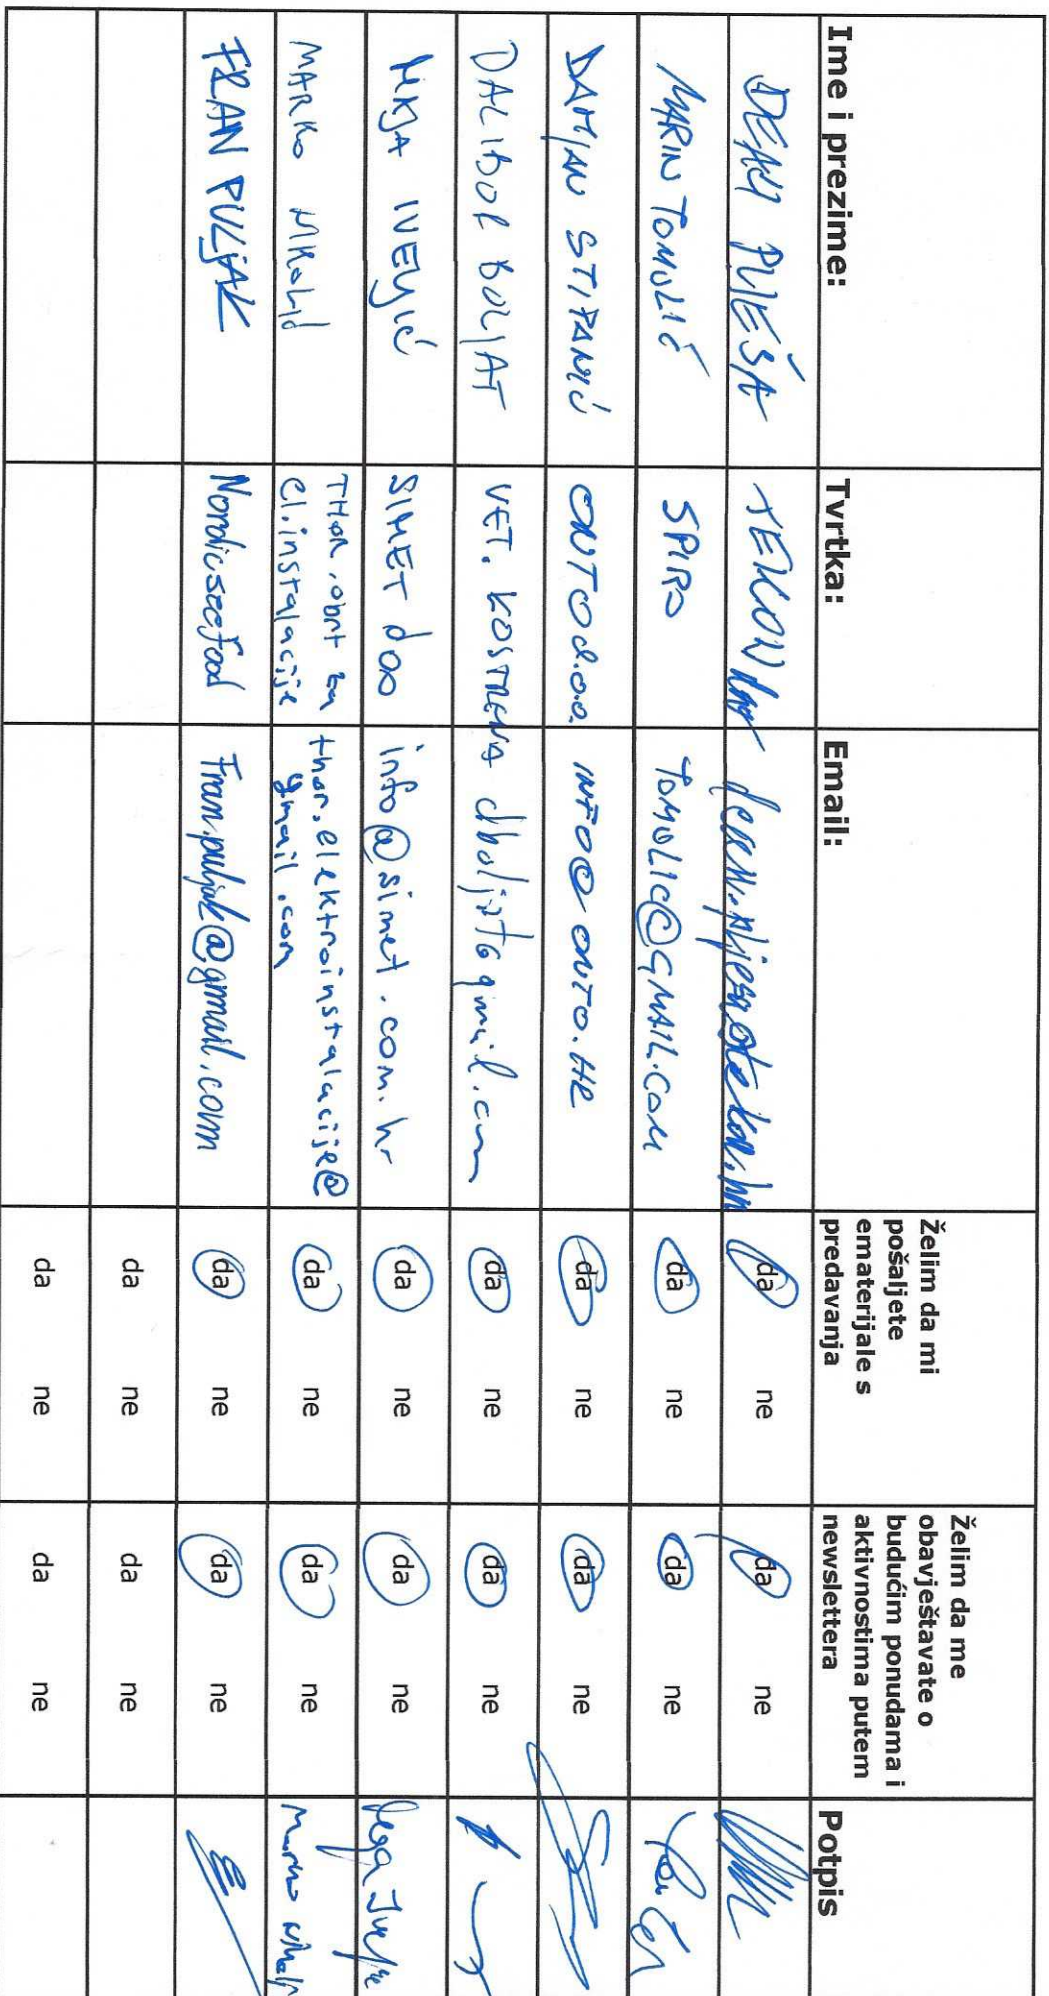 Ime i prezime: Tvrtka: Email: Želim da mi pošaljete ematerijale s predavanja Želim da me obavještavate o budućim ponudama i aktivnostima putem newslettera Potpis
DEAN PLJEŠA TEKON da ne da ne
MARIN TOMULIĆ SPIRO TOMOLIC@GMAIL.COM da ne da ne
DAMJAN STIPANIĆ ONTO d.o.o. INFO@ONTO.HR da ne da ne
DALIBOR BOLJAT VET. KOSTRENA dboljat@gmail.com da ne da ne
IVEZIĆ SIMET doo info@simet.com.hr da ne da ne
MARKO THOR, obrt za el.instalacije thor.elektroinstalacije@gmail.com da ne da ne Marko
FRAN PULJAK Nordic seafood Fran.puljak@gmail.com da ne da ne
da ne da ne
da ne da ne